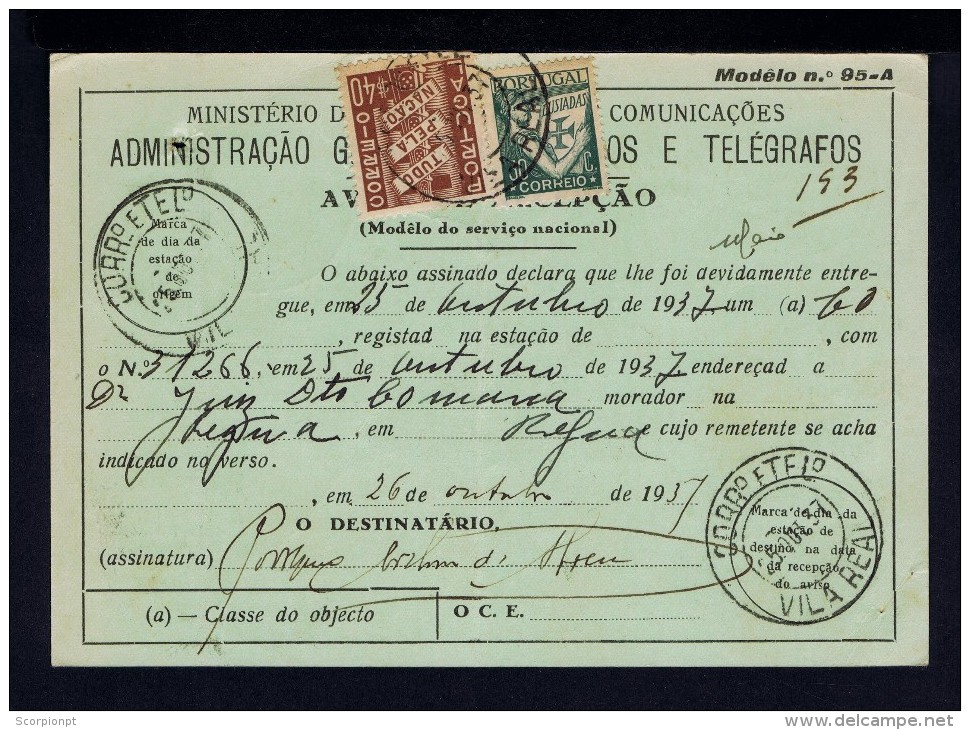 Modêlo n.º 95-A
MINISTÉRIO D COMUNICAÇÕES
ADMINISTRAÇÃO G OS E TELÉGRAFOS
$40
TUDO PELA NAÇÃO
PORTUGAL
LUSIADAS
C.
CORREIO
AV CEPÇÃO
(Modêlo do serviço nacional)
193
CORRO E TELO
VIL
Marca
de dia da
estação
de
origem
O abaixo assinado declara que lhe foi devidamente entre-
gue, em 25 de outubro de 1937 um (a)
, registad na estação de , com
o N.º 31266, em 25 de outubro de 1937 endereçad a
Juiz Dto Comarca morador na
Regua, em Regua e cujo remetente se acha
indicado no verso.
, em 26 de outubro de 1937
O DESTINATÁRIO,
(assinatura)
CORRO E TELO
VILA REAL
Marca de dia da
estação de
destino na data
da recepção
do aviso
(a) — Classe do objecto
O C. E.
Scorpionpt
www.delcampe.net